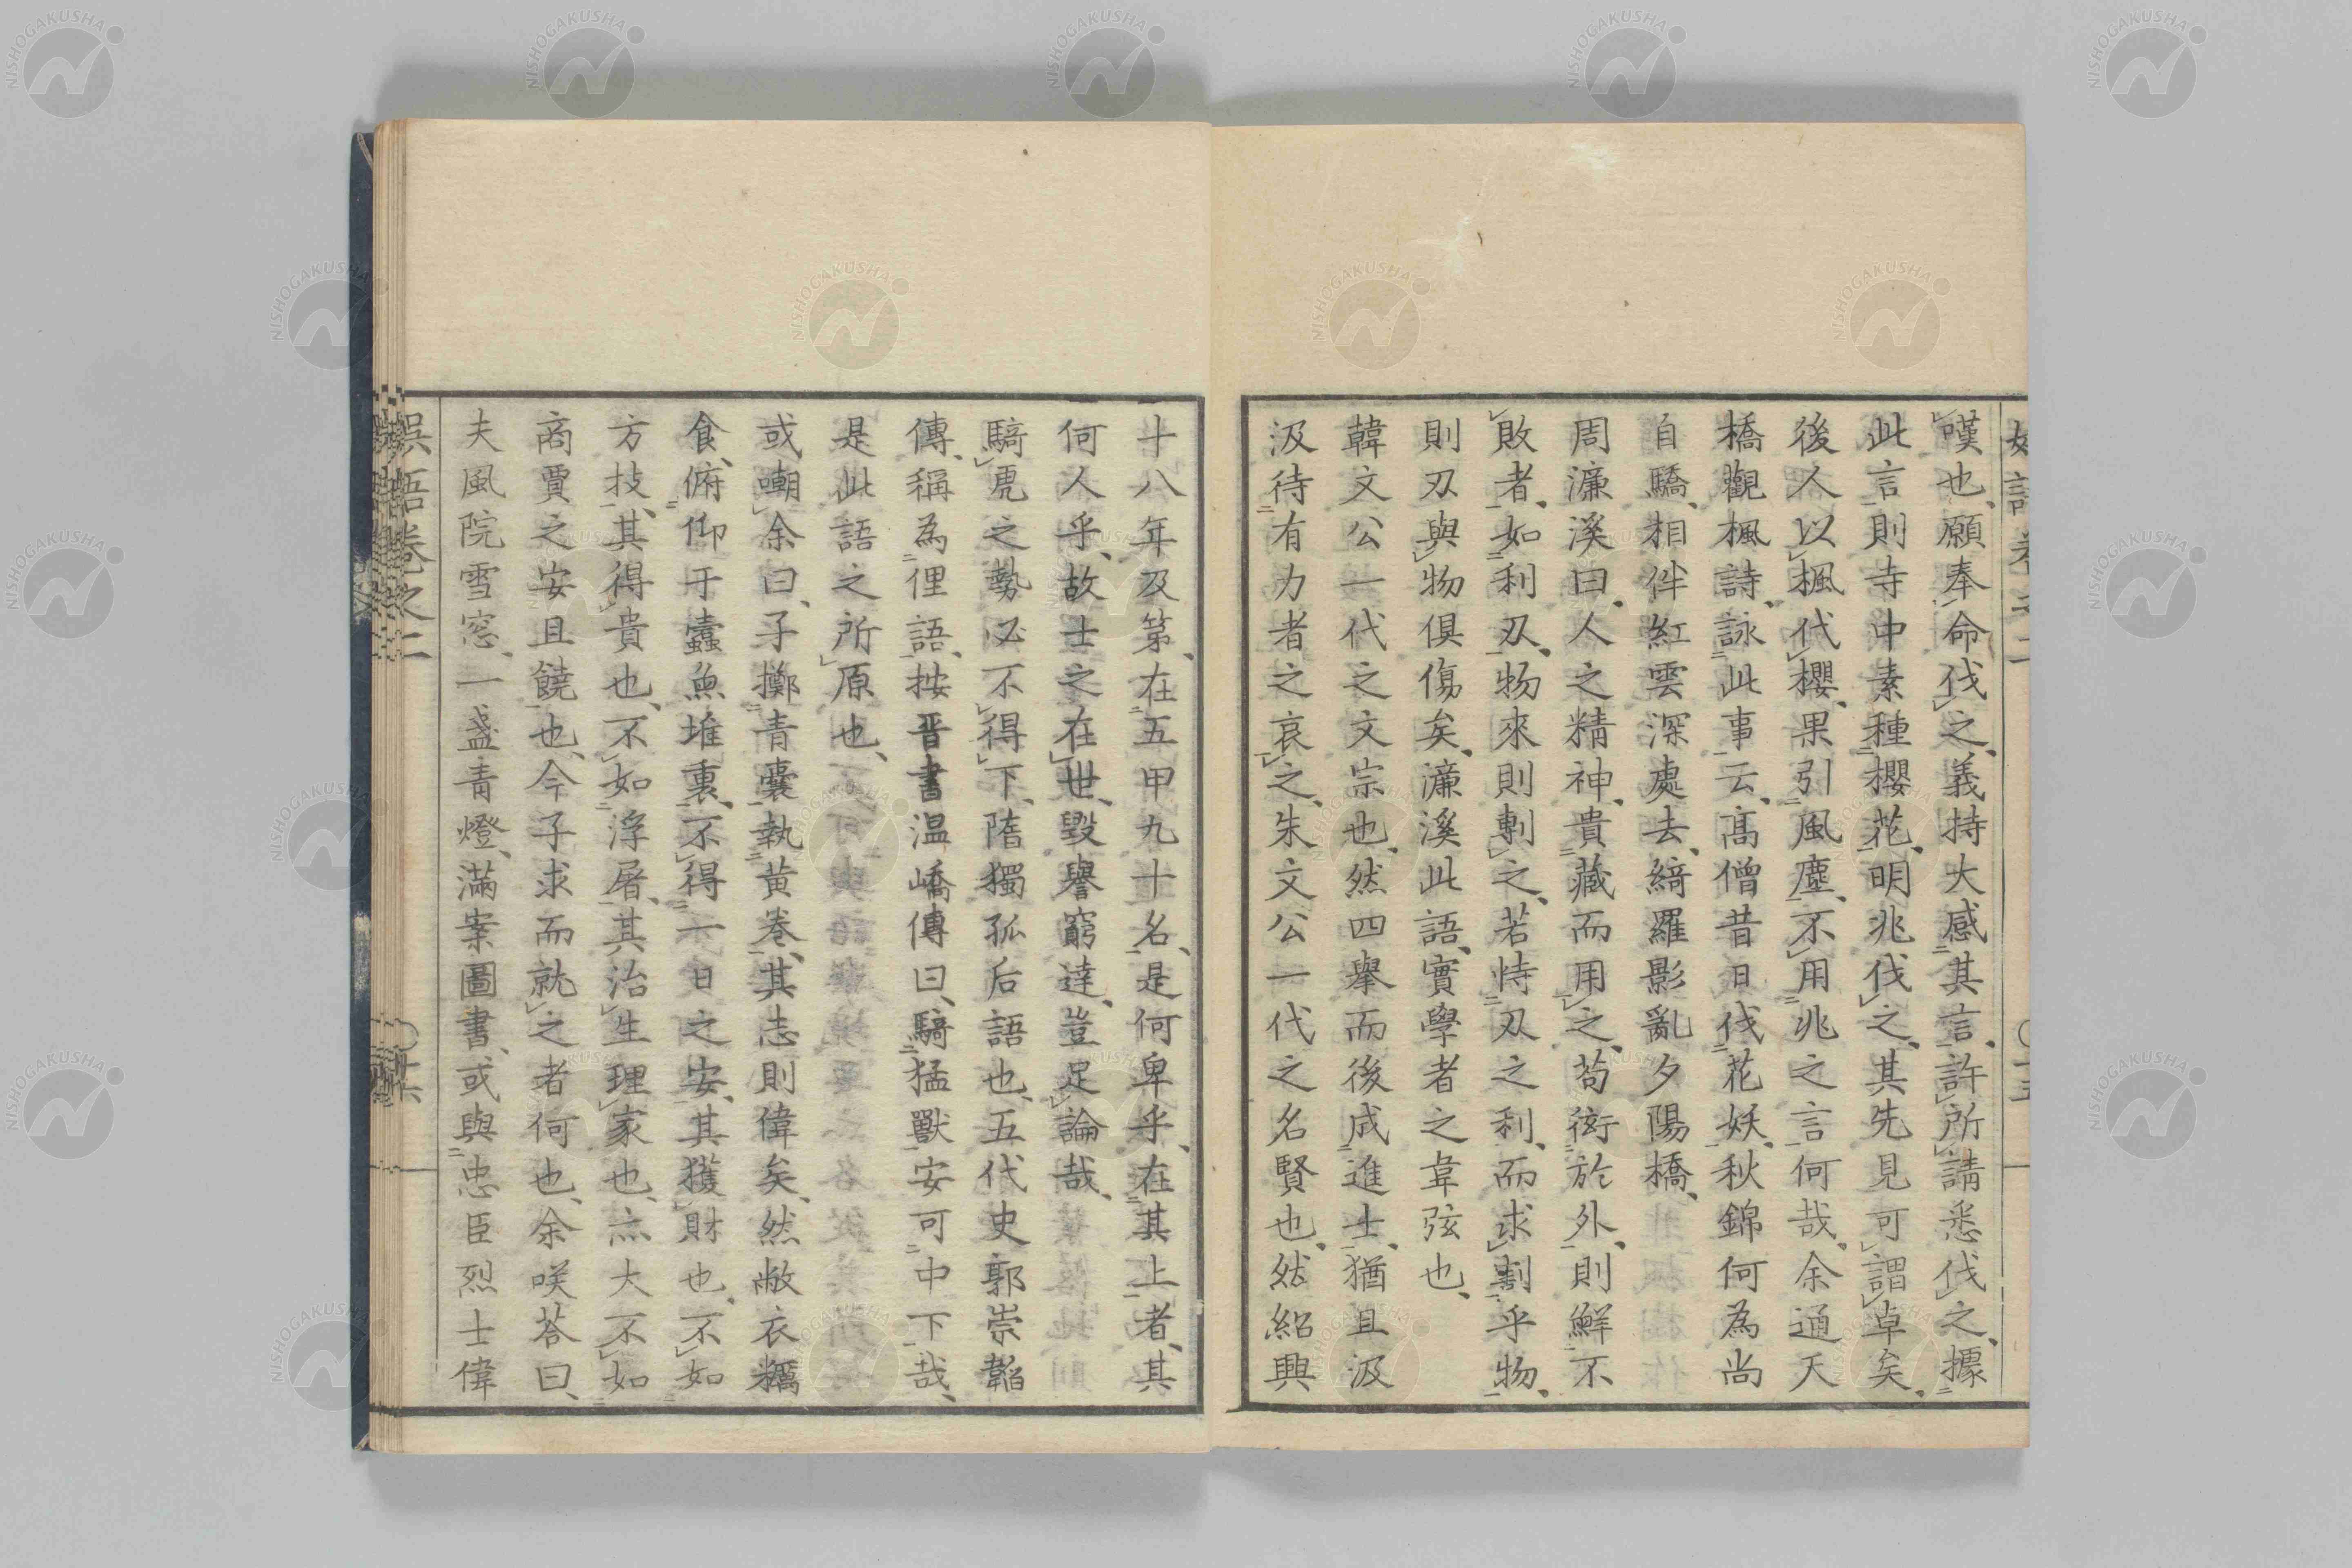 嘆也、願奉命伐之、義持大感其言、許所請悉伐之、據
此言則寺中素種櫻花、明兆伐之、其先見可謂卓矣、
後人以楓代櫻、果引風塵、不用兆之言何哉、余通天
橋觀楓詩、詠此事云、高僧昔日伐花妖、秋錦何為尚
自驕、相伴紅雲深處去、綺羅影亂夕陽橋、
周濂溪曰、人之精神、貴藏而用之、苟衒於外、則鮮不
敗者、如利刃、物來則剸之、若恃刃之利、而求割乎物、
則刃與物俱傷矣、濂溪此語、實學者之韋弦也、
韓文公一代之文宗也、然四舉而後成進士、猶且汲
汲待有力者之哀之、朱文公一代之名賢也、然紹興
十八年及第、在五甲九十名、是何卑乎、在其上者、其
何人乎、故士之在世、毀譽窮達、豈足論哉、
騎虎之勢必不得下、隋獨孤后語也、五代史郭崇韜
傳、稱為俚語、按晋書温嶠傳曰、騎猛獸安可中下哉、
是此語之所原也、
或嘲余曰、子擲青囊執黄卷、其志則偉矣、然敝衣糲
食、俯仰于蠹魚堆裏、不得一日之安、其獲財也、不如
方技、其得貴也、不如浮屠、其治生理家也、亦大不如
商賈之安且饒也、今子求而就之者何也、余咲荅曰、
夫風院雪窓、一盞青燈、滿案圖書、或與忠臣烈士偉
娯語巻之二
十六